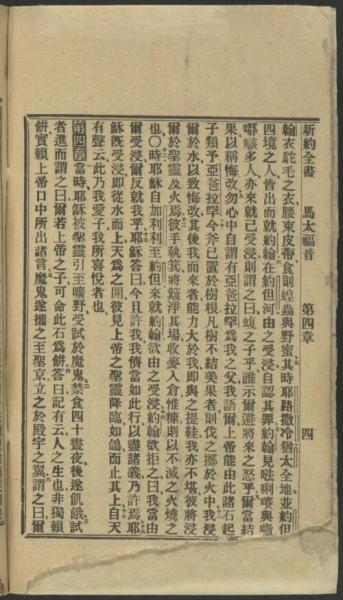 新約全書 馬太福音 第四章 四
翰衣駝毛之衣腰束皮帶食則蝗蟲與野蜜其時耶路撒冷猶太全地並約但
四境之人皆出而就約翰在約但河由之受浸自認其罪約翰見㕸唎㘔與
嘟㗭多人亦來就己受浸則謂之曰蝮之子乎誰示爾避將來之怒乎爾當結
果以稱悔改勿心中自謂有亞爸拉罕為我之父我語爾上帝能由此諸石起
子類予亞爸拉罕今斧已置於樹根凡樹不結美果者則伐之擲於火中我浸
爾於水以致悔改其後我而來者能力大於我即與之提鞋我亦不堪彼將浸
爾於聖靈及火焉彼手執箕將簸淨其場收麥入倉惟糠則以不滅之火燒之
也〇時耶穌自加利利至約但來就約翰欲由之受浸約翰欲拒之曰我當由
爾受浸爾反就我乎耶穌答曰今且許我我儕當如此行以盡諸義乃許焉耶
穌既受浸即從水而上天為之開彼見上帝之聖靈降臨如鴿而止其上自天
有聲云此乃我愛子我所喜悅者也
第四章 當時耶穌被聖靈引至曠野受試於魔鬼禁食四十晝夜後遂飢餓試
者進而謂之曰爾若上帝之子可命此石為餅答曰記有云人之生也非獨賴
餅實賴上帝口中所出諸言魔鬼遂攜之至聖京立之於殿宇之翼謂之曰爾